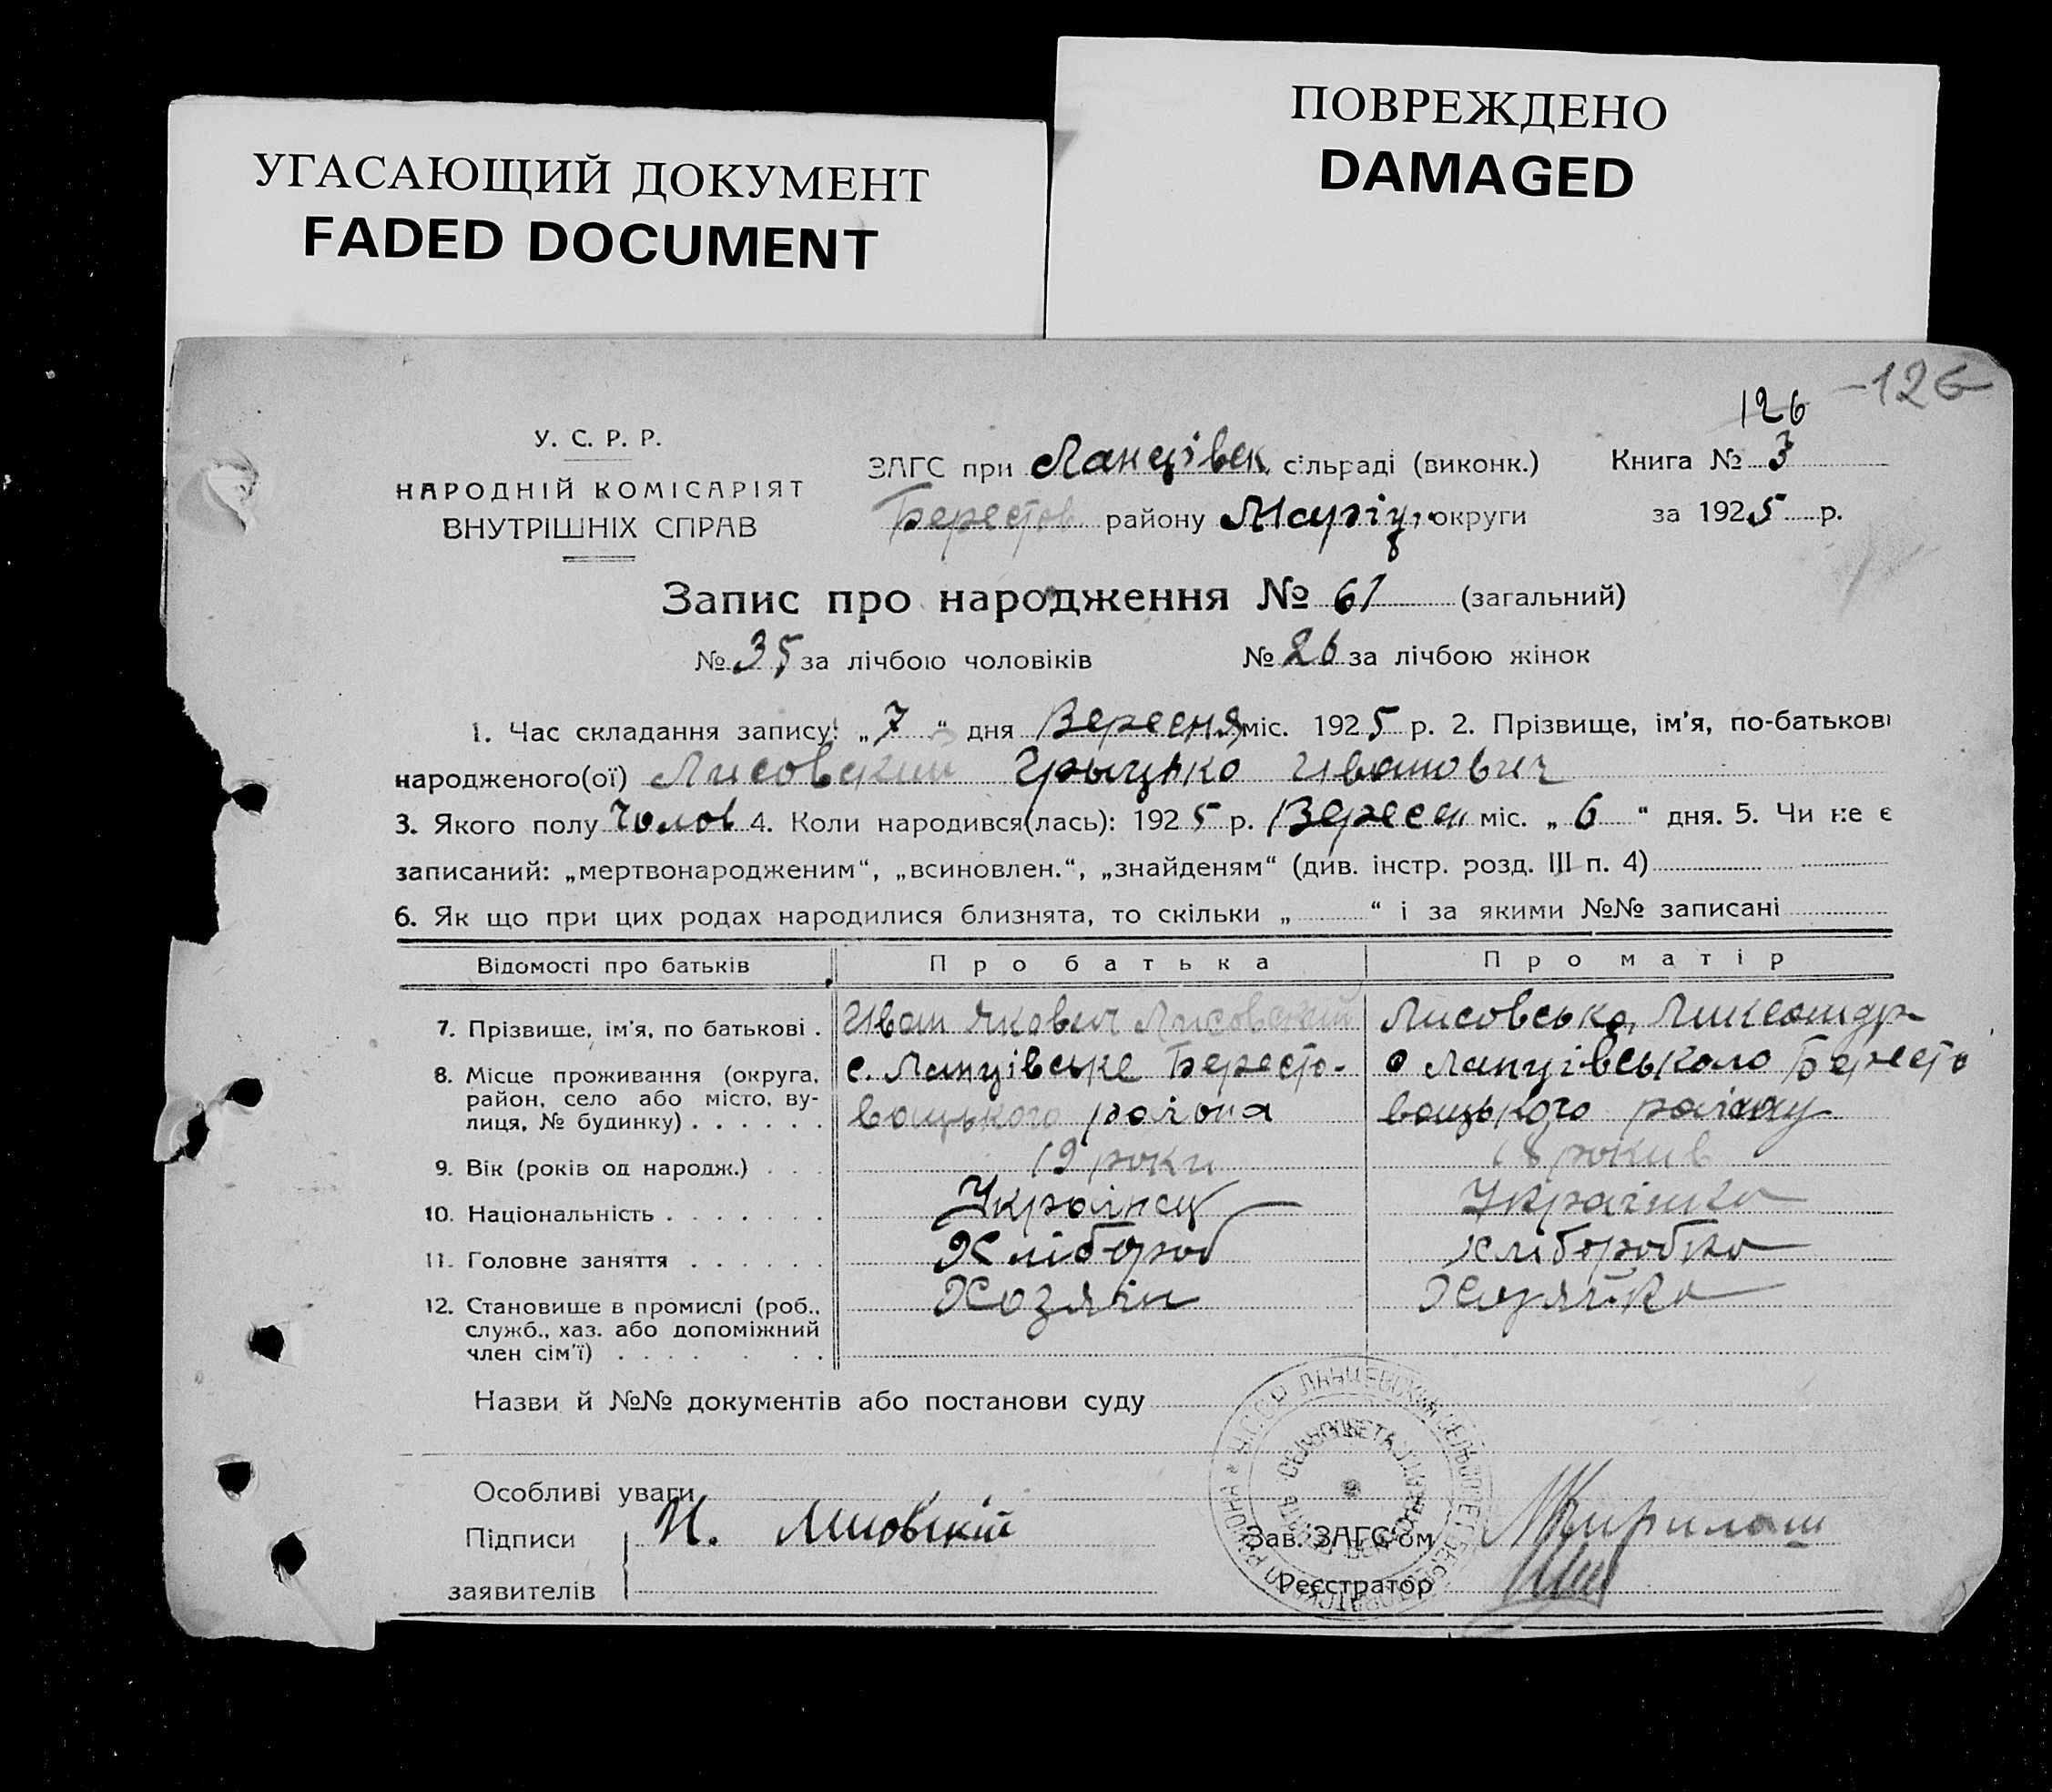 УГАСАЮЩИЙ ДОКУМЕНТ
FADED DOCUMENT
ПОВРЕЖДЕНО
DAMAGED
126 -126
У. С. Р. Р.
НАРОДНІЙ КОМІСАРІЯТ
ВНУТРІШНІХ СПРАВ
ЗАГС при Ланцівск сільраді (виконк.)
Берестов району Маріуп. округи
Книга № 3
за 1925 р.
Запис про народження № 61 (загальний)
№ 35 за лічбою чоловіків № 26 за лічбою жінок
1. Час складання запису: „7“ дня Вересня міс. 1925 р. 2. Прізвище, ім'я, по-батькові
народженого(ої) Лисовский Грыцько Иванович
3. Якого полу Чолов 4. Коли народився(лась): 1925 р. Вересен міс. „6“ дня. 5. Чи не є
записаний: „мертвонародженим“, „всиновлен.“, „знайденям“ (див. інстр. розд. III п. 4)
6. Як що при цих родах народилися близнята, то скільки „ “ і за якими №№ записані
Відомості про батьків Про батька Про матір
7. Прізвище, ім'я, по батькові . Иван Якович Лисовский Лисовська
8. Місце проживання (округа, район, село або місто, вулиця, № будинку) . . . . . . с. Ланцівське Берестовацького района Ланцівського Берестовацького району
9. Вік (років од народж.) . . . 19 роки 18 рокив
10. Національність . . . . . . . Українец Українка
11. Головне заняття . . . . . . Хлібороб хліборобка
12. Становище в промислі (роб., служб., хаз. або допоміжний член сім'ї) . . . . . . Хозяін Хозяйка
Назви й №№ документів або постанови суду
Особливі уваги
Підписи И. Лисовский Зав. ЗАГС'ом
заявителів Реєстратор